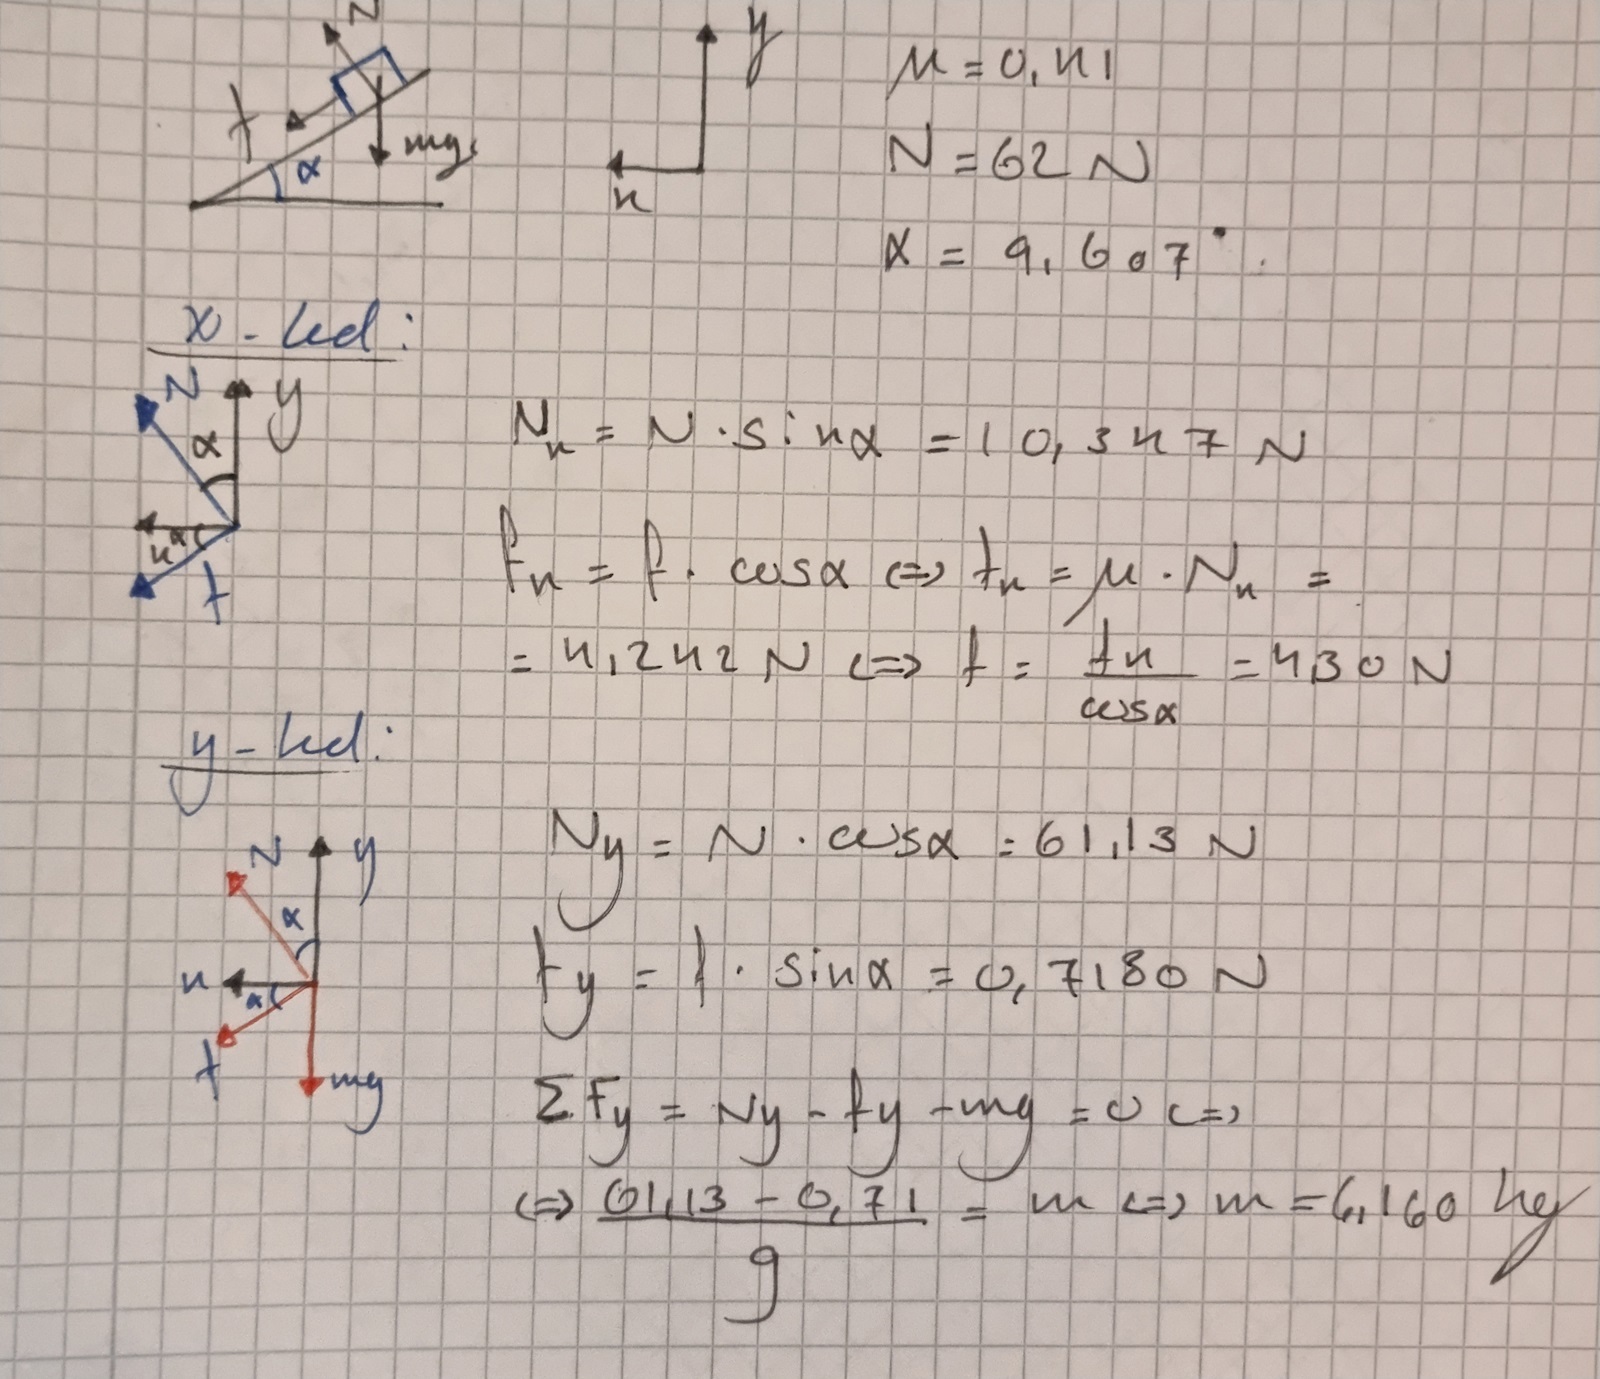 N
f
mg
α
y
x
μ = 0,41
N = 62 N
α = 9,607°
x-led:
N
y
α
x
α
f
Nx = N · sinα = 10,347 N
fx = f · cosα <=> fx = μ · Nx =
= 4,242 N <=> f = fx / cosα = 4,30 N
y-led:
N
y
α
x
α
f
mg
Ny = N · cosα = 61,13 N
fy = f · sinα = 0,7180 N
ΣFy = Ny - fy - mg = 0 <=>
<=> 61,13 - 0,71 / g = m <=> m = 6,160 kg